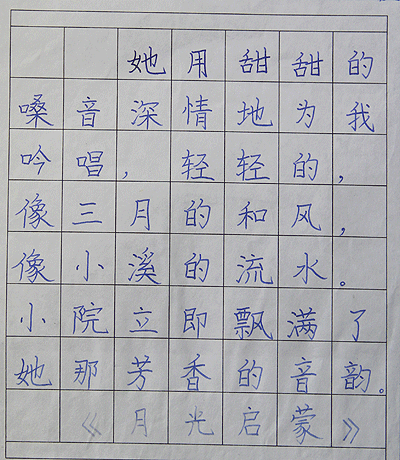 她用甜甜的
嗓音深情地为我
吟唱，轻轻的，
像三月的和风，
像小溪的流水。
小院立即飘满了
她那芳香的音韵。
《月光启蒙》